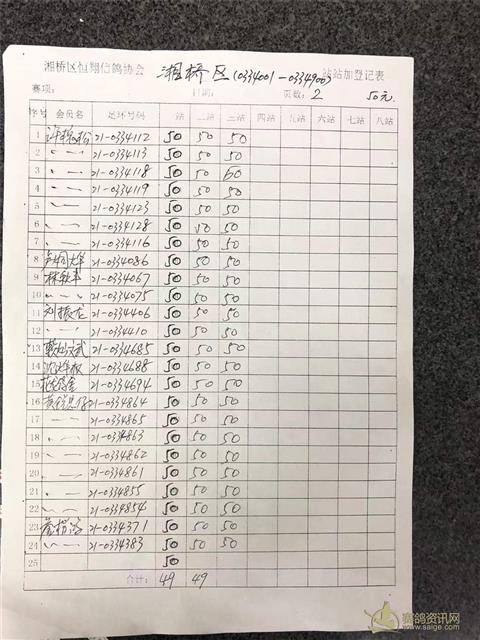 湘桥区恒翔信鸽协会 湘桥区(0334001-0334900) 站站加登记表
赛项: 日期: 页数: 2 50元
序号 会员名 足环号码 一站 二站 三站 四站 五站 六站 七站 八站
1 21-0334112 50 50 50
2 〃 21-0334113 50 50 50
3 〃 21-0334118 50 50 60
4 〃 21-0334119 50 50 50
5 〃 21-0334123 50 50 50
6 〃 21-0334128 50 50 50
7 〃 21-0334116 50 50 50
8 21-0334086 50 50 50
9 林 21-0334067 50 50 50
10 〃 21-0334075 50 50 50
11 刘振龙 21-0334406 50 50 50
12 〃 21-0334410 50 50 50
13 21-0334685 50 50 50
14 21-0334688 50 50 50
15 21-0334694 50 50 50
16 21-0334864 50 50 50
17 〃 21-0334865 50 50 50
18 〃 21-0334863 50 50 50
19 〃 21-0334862 50 50 50
20 〃 21-0334861 50 50 50
21 〃 21-0334855 50 50 50
22 〃 21-0334854 50 50 50
23 21-0334371 50 50 50
24 〃 21-0334383 50 50 50
25 50
合计: 49 49
赛鸽资讯网
www.saige.com